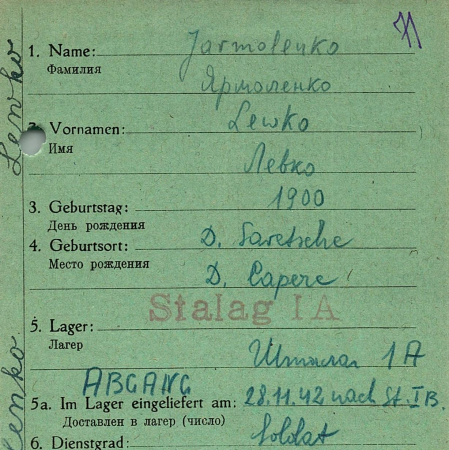 71
1. Name: Jarmolenko
Фамилия
Ярмоленко
2. Vornamen: Lewko
Имя
Левко
3. Geburtstag: 1900
День рождения
4. Geburtsort: D. Saretsche
Место рождения
D.
Stalag IA
5. Lager:
Лагер
Шталаг 1A
ABGANG
5a. Im Lager eingeliefert am: 28.11.42 nach St. IB.
Доставлен в лагер (число)
6. Dienstgrad: Soldat
Lewko
enko